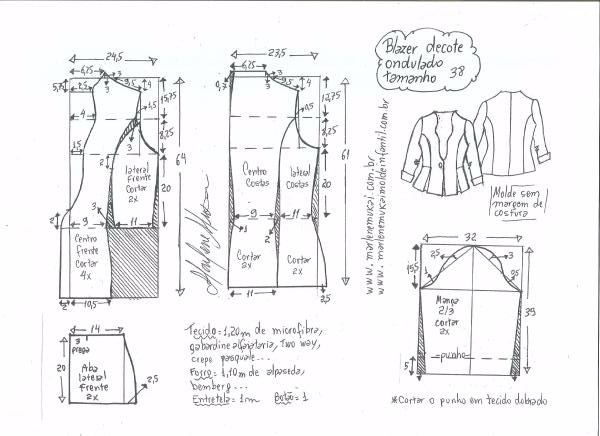 Blazer decote
ondulado
tamanho 38
24,5
6,25
5,75
2,5
3
3
9,5
4
1,5
15,75
4
8,25
3
1,5
2
lateral
Frente
cortar
2x
20
64
2
3
9
11
Centro
frente
cortar
4x
2
10,5
23,5
6,25
0,7
3
9,5
4
0,5
12,75
8,25
Centro
Costas
lateral
costas
20
61
9
11
1
2
Cortar
2x
Cortar
2x
11
2,5
www.marlenemukai.com.br
www.marlenemukaimoldeinfantil.com.br
Molde sem
margem de
costura
32
15,5
2,5
3
1
0,5
Manga
2/3
cortar
2x
39
=punho=
5
*Cortar o punho em tecido dobrado
14
3
prega
20
Aba
lateral
frente
2x
2,5
Tecido=1,20m de microfibra,
gabardine alfaiataria, Two way,
crepe pasquale...
Forro=1,10m de alpaseda,
bemberg...
Entretela=1m Botão=1